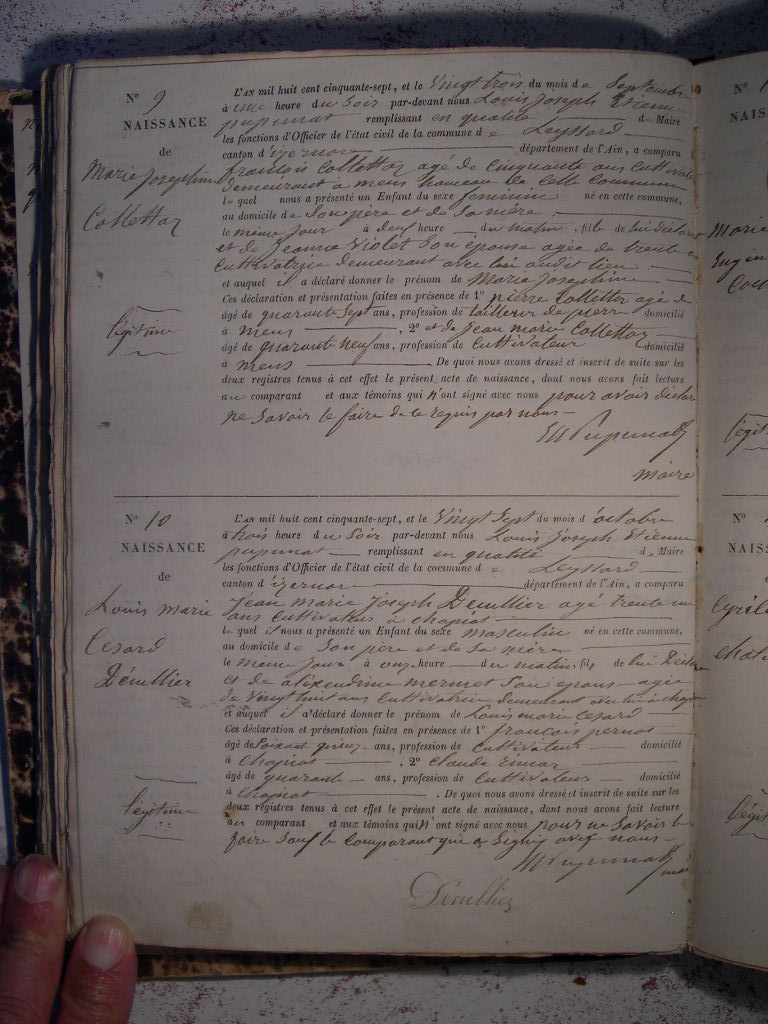 N° 9
NAISSANCE
de
Marie Josephine
Collettaz
légitime
L'AN mil huit cent cinquante-sept, et le Vingt trois du mois de Septembre
à une heure du Soir par-devant nous Louis Joseph Etienne
pupunat remplissant en qualité de Maire
les fonctions d'Officier de l'état civil de la commune de Leyssard
canton d'izernore département de l'Ain, a comparu
françois Collettaz agé de Cinquante ans Cultivateur
demeurant a mens hameau de Cette Commune
lequel nous a présenté un Enfant du sexe feminin né en cette commune,
au domicile de Son père et de Sa mère
le même jour à neuf heure du matin, fils de lui déclarant
et de Jeanne Violet Son épouse agée de trente
Cultivatrice demeurant avec lui audit lieu
et auquel il a déclaré donner le prénom de Marie Josephine
Ces déclaration et présentation faites en présence de 1° pierre Collettaz agé de
âgé de quarante Sept ans, profession de tailleur de pierre domicilié
à mens , 2° et de Jean marie Collettaz
âgé de quarante neuf ans, profession de Cultivateur domicilié
à mens . De quoi nous avons dressé et inscrit de suite sur les
deux registres tenus à cet effet le présent acte de naissance, dont nous avons fait lecture
au comparant et aux témoins qui n'ont signé avec nous pour avoir déclaré
ne Savoir le faire de le requis par nous
Pupunat
maire
N° 10
NAISSANCE
de
Louis marie
Cesard
Dénullier
légitime
L'AN mil huit cent cinquante-sept, et le Vingt Sept du mois d'octobre
à trois heure du Soir par-devant nous Louis Joseph Etienne
pupunat remplissant en qualité de Maire
les fonctions d'Officier de l'état civil de la commune de Leyssard
canton d'izernore département de l'Ain, a comparu
Jean marie Joseph Dénullier agé trente un
ans Cultivateur à chapiat
lequel nous a présenté un Enfant du sexe masculin né en cette commune,
au domicile de Son père et de Sa mère
le même jour à onze heure du matin, fils de lui Déclarant
et de alexendrine mermet Son épouse agée
de Vingt huit ans Cultivatrice demeurant avec lui à chapiat
et auquel il a déclaré donner le prénom de Louis marie Cesard
Ces déclaration et présentation faites en présence de 1° françois pernos
âgé de Soixante quinze ans, profession de Cultivateur domicilié
à Chapiat , 2° Claude
âgé de quarante ans, profession de Cultivateur domicilié
à Chapiat . De quoi nous avons dressé et inscrit de suite sur les
deux registres tenus à cet effet le présent acte de naissance, dont nous avons fait lecture
au comparant et aux témoins qui n'ont signé avec nous pour ne Savoir le
faire Sauf le Comparant que a Signé avec nous
Pupunat
Dénullier